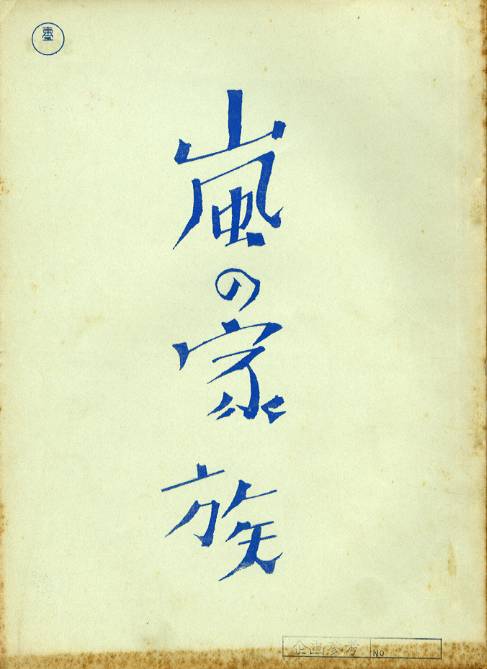 嵐の家族
企画参考 NO